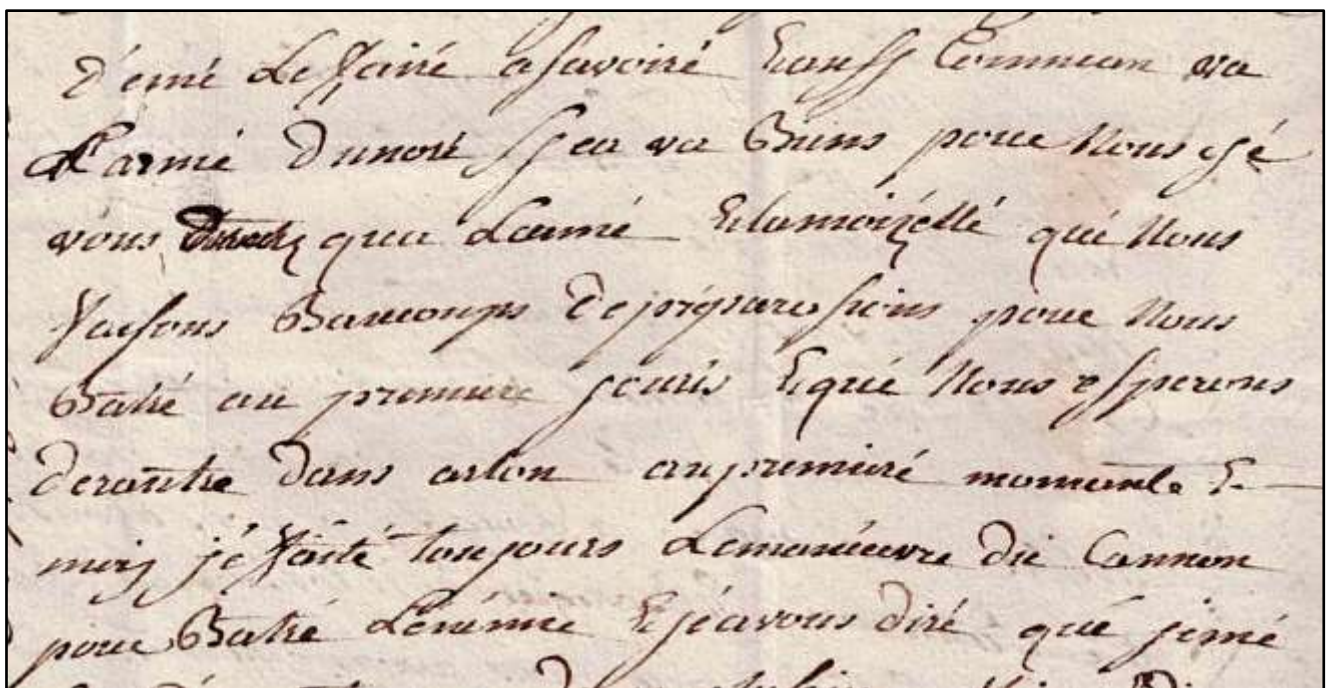 d'emé Le faire asavoiré Eausy Commean va
L'armé dunort sy ca va Biens poue Nous gé
vous que Larmé Elamoizellé qué Nous
faisons Baucoups de préparasions pour Nous
Batré au premiere jouris Equé Nous esperons
derantré dans arlon aupremiuré momente E
moy jé faité toujours Lemanieuvre du Cannon
poue Batré Lénémie Ejéavous diré qué jémé